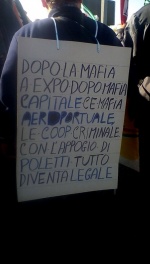 DOPO LA MAFIA
A EXPO DOPO MAFIA
CAPITALE C'E MAFIA
AEROPORTUALE
LE COOP CRIMINALE
CON L'APPOGIO DI
POLETTI TUTTO
DIVENTA LEGALE